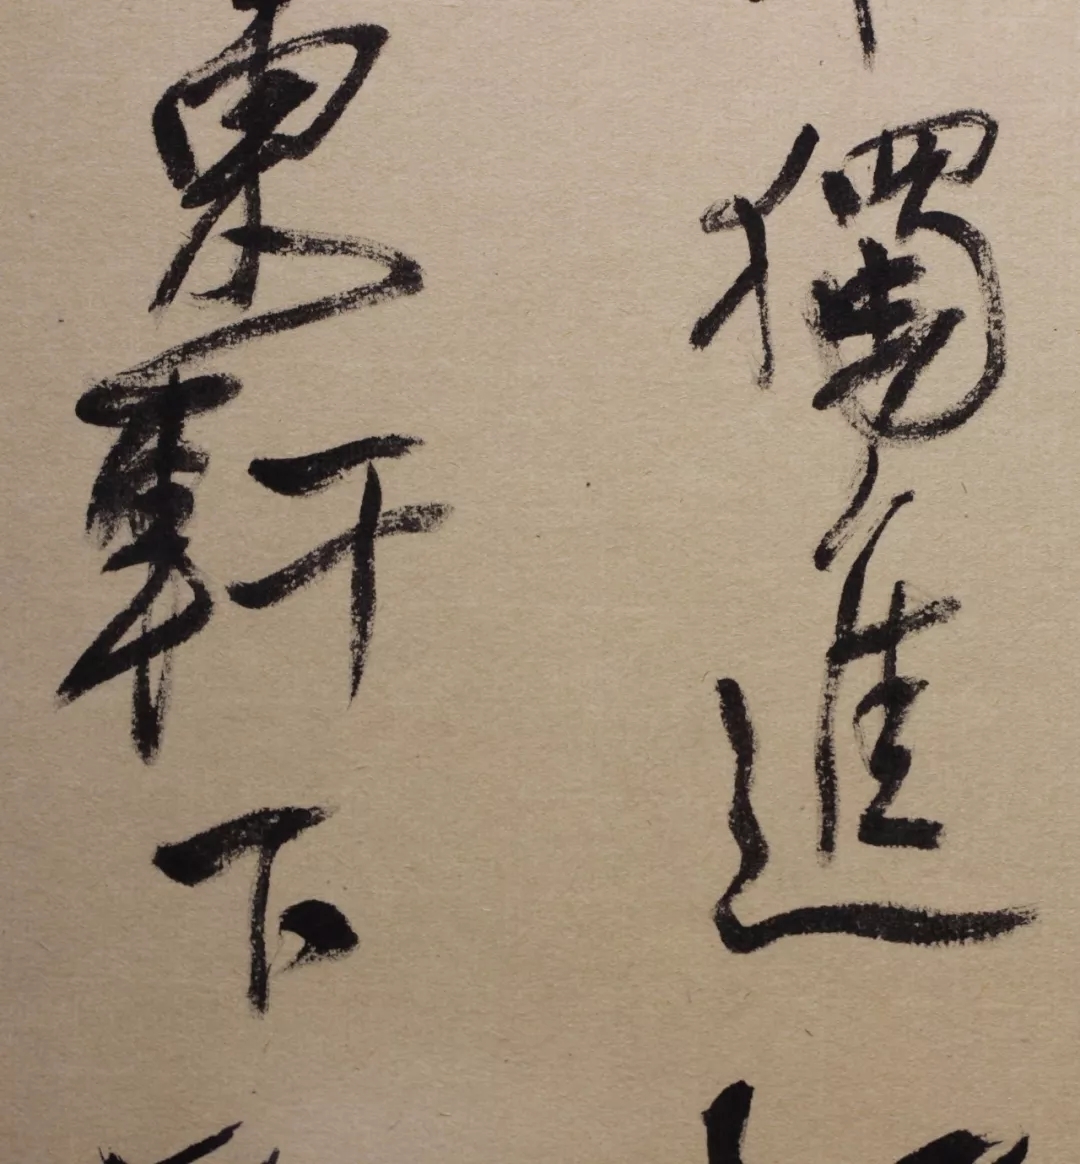 獨進
東軒下